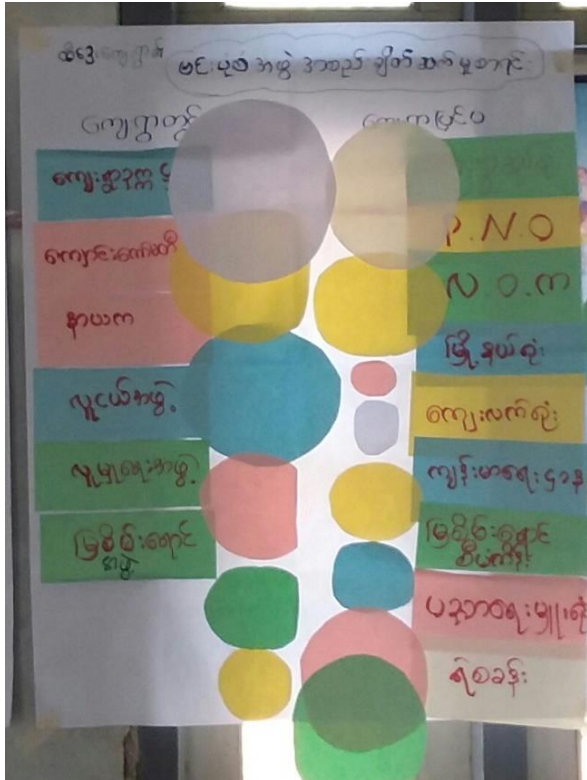 မင်းမဲ့စံအဖွဲ့အစည်းချိတ်ဆက်မှုစာရင်း
ကျေးရွာတွင်း
ကျေးရွာပြင်ပ
ကျေးရွာဥက္ကဌ
ကျောင်းကော်မတီ
နာယက
လူငယ်အဖွဲ့
လူမှုရေးအဖွဲ့
မြစိမ်းရောင်
အဖွဲ့
P.N.O
လ.ဝ.က
မြို့နယ်ရုံး
ကျေးလက်ရုံး
ကျန်းမာရေးဌာန
မြစိမ်းရောင်
စီမံကိန်း
ပညာရေးမှူးရုံး
ရဲစခန်း